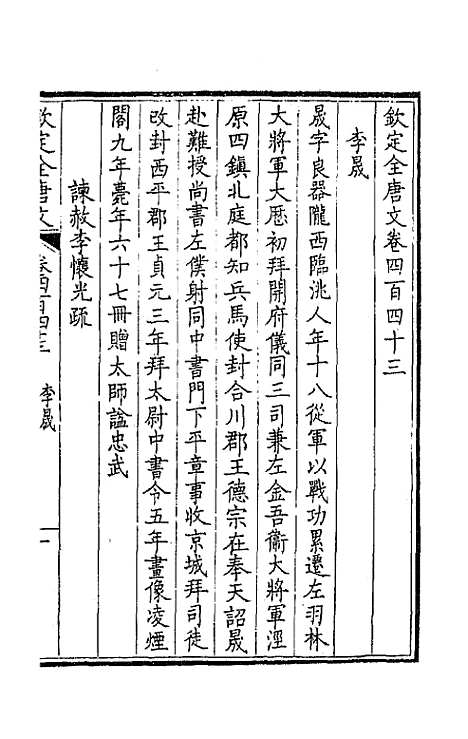 欽定全唐文卷四百四十三
李晟
晟字良器隴西臨洮人年十八從軍以戰功累遷左羽林
大將軍大厯初拜開府儀同三司兼左金吾衞大將軍涇
原四鎮北庭都知兵馬使封合川郡王德宗在奉天詔晟
赴難授尚書左僕射同中書門下平章事收京城拜司徒
改封西平郡王貞元三年拜太尉中書令五年畫像凌煙
閣九年薨年六十七冊贈太師諡忠武
諫赦李懷光疏
欽定全唐文 卷四百四十三 李晟 一